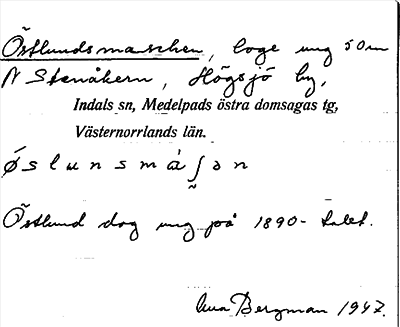 Östlundsmaschen, loge ung 50 m
N Stenåkern, Högsjö by,
Indals sn, Medelpads östra domsagas tg,
Västernorrlands län.
ǿslunsmàʃ̰ən
Östlund dog ung på 1890-talet.
Bergman 1947.